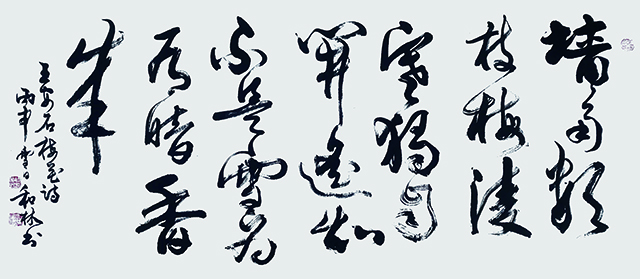 墙角数
枝梅凌
寒独自
開遥知
不是雪为
有暗香
来
王安石梅花诗
丙申 日和林书